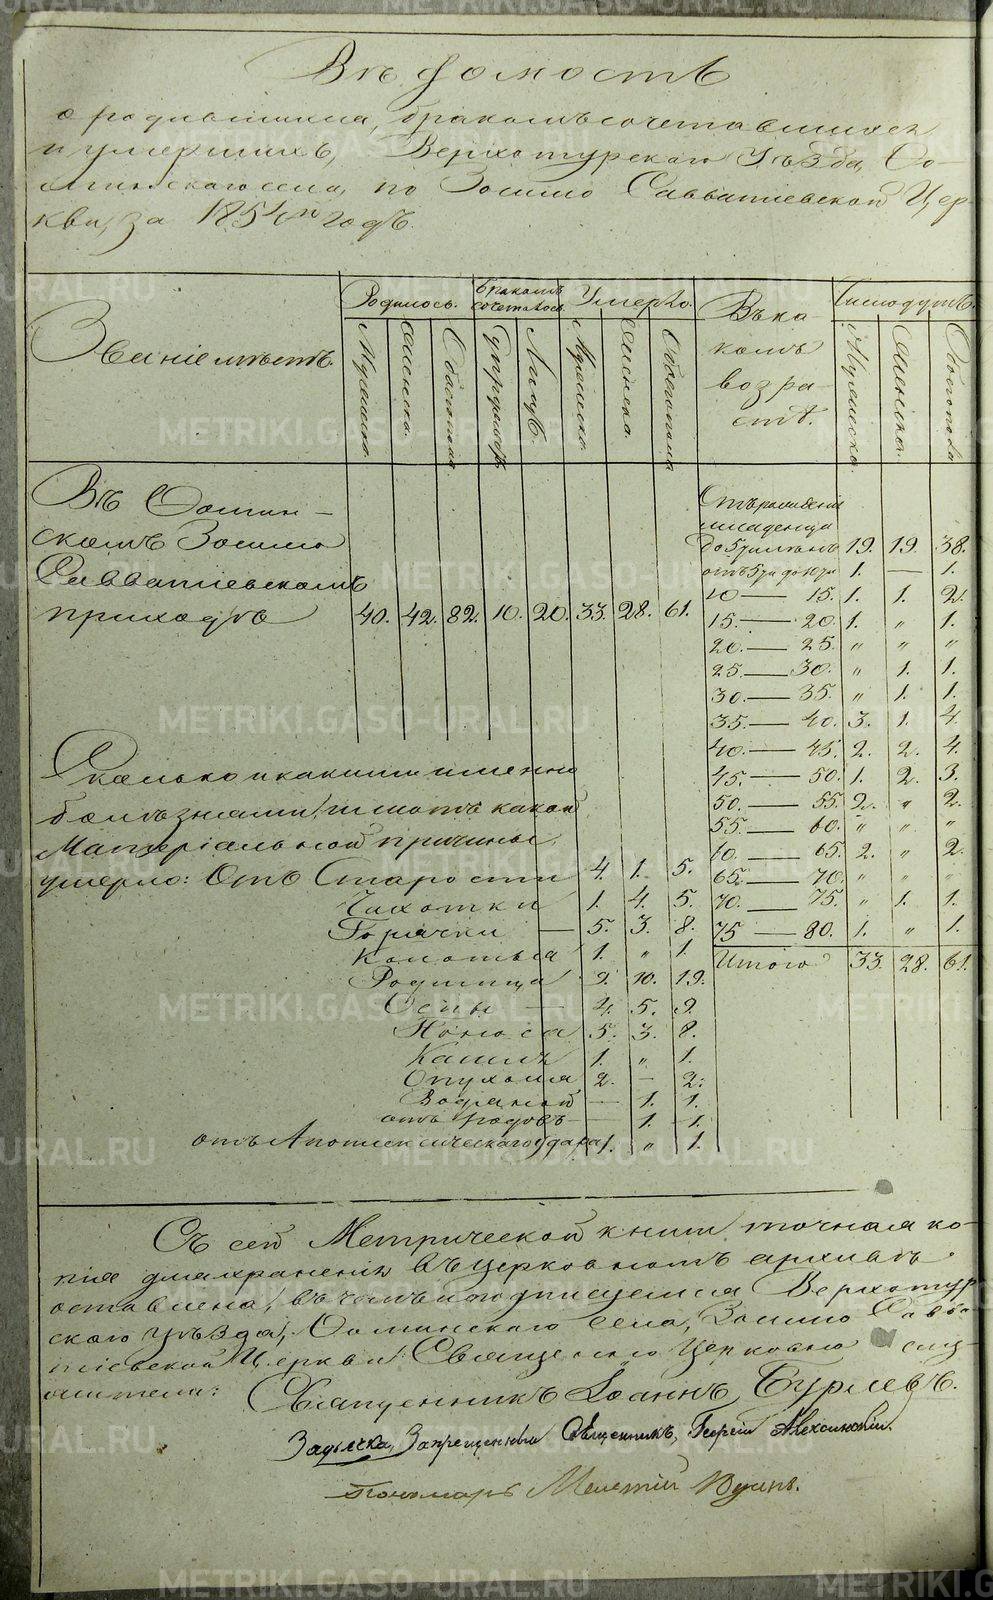 Вѣдомость
о родившихся, бракомъ сочетавшихся
и умершихъ, Верхотурскаго Уѣзда, Со-
сминскаго села, по Зосимо Савватіевской Цер-
кви, за 1854й годъ.
Званіе мѣстъ.
Родилось.
Мужеска.
Женска.
Обоегопола
Бракомъ
сочеталось.
Супружес.
Лицъ.
Умерло.
Мужеска.
Женска.
Обоегопола
Въ ка-
комъ
возра-
стѣ.
Число душъ.
Мужеска.
Женска.
Обоегопола
Въ
скомъ Зосимо
Савватіевскомъ
приходѣ 40. 42. 82. 10. 20. 33. 28. 61.
Отъ рожденія
младенца
до 5ти лѣтъ 19. 19. 38.
отъ 5ти до 10ти 1. — 1.
10 — 15. 1. 1. 2.
15. — 20. 1. „ 1.
20. — 25. „ „ „
25. — 30. „ 1. 1.
30. — 35. „ 1. 1.
35. — 40. 3. 1. 4.
40. — 45. 2. 2. 4.
45. — 50. 1. 2. 3.
50. — 55. 2. „ 2.
55. — 60. „ „ „
10. — 65. 2. „ 2.
65. — 70. „ „ „
70. — 75. „ 1. 1.
75 — 80. 1. „ 1.
Итого 33. 28. 61.
Сколько и какими именно
болѣзнями, или отъ какой
Матеріальной причины
умерло: Отъ Старости 4. 1. 5.
Чахотки 1. 4. 5.
Горячки — 5. 3. 8.
Колотья 1. „ 1.
Родимца 9. 10. 19.
Оспы — 4. 5. 9.
Поноса 5. 3. 8.
Кашля 1. „ 1.
Опухоли 2. — 2.
Водяной — 1. 1.
отъ Родовъ — 1. 1.
отъ Апоплексическаго удара 1. „ 1.
Съ сей Метрической книги точная ко-
пія для храненія въ церковномъ архивѣ
оставлена, въ чемъ и подписуемся Верхотур
скаго уѣзда, села, Зосимо Савва-
тіевской Церкви Священно Церковно слу-
жители:
Священникъ Іоаннъ Бурлевъ.
Запрещенный Священникъ, Георгій
Пономарь Мелетій
METRIKI.GASO-URAL.RU